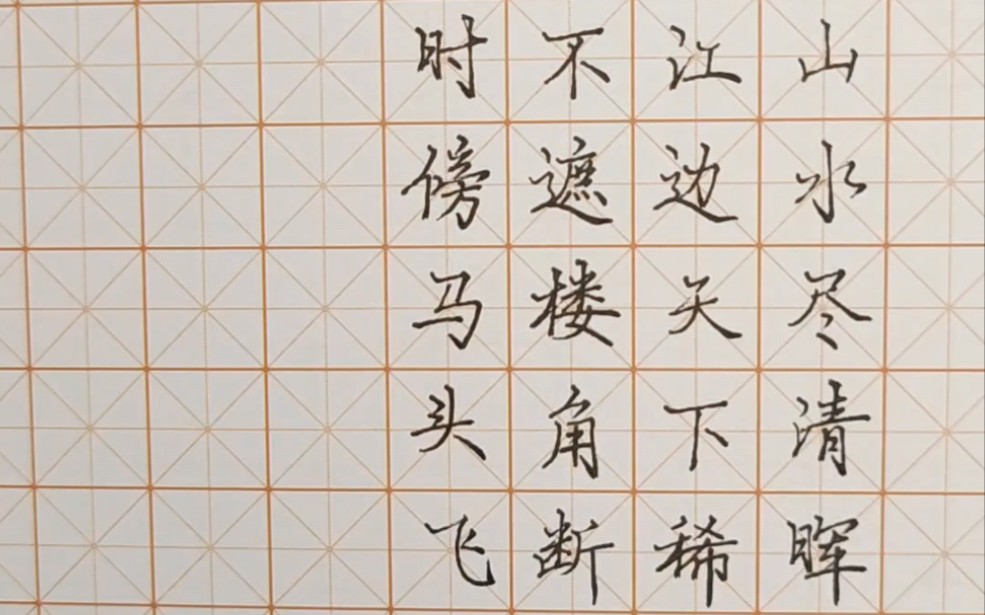 山水尽清晖
江边天下稀
不遮楼角断
时傍马头飞